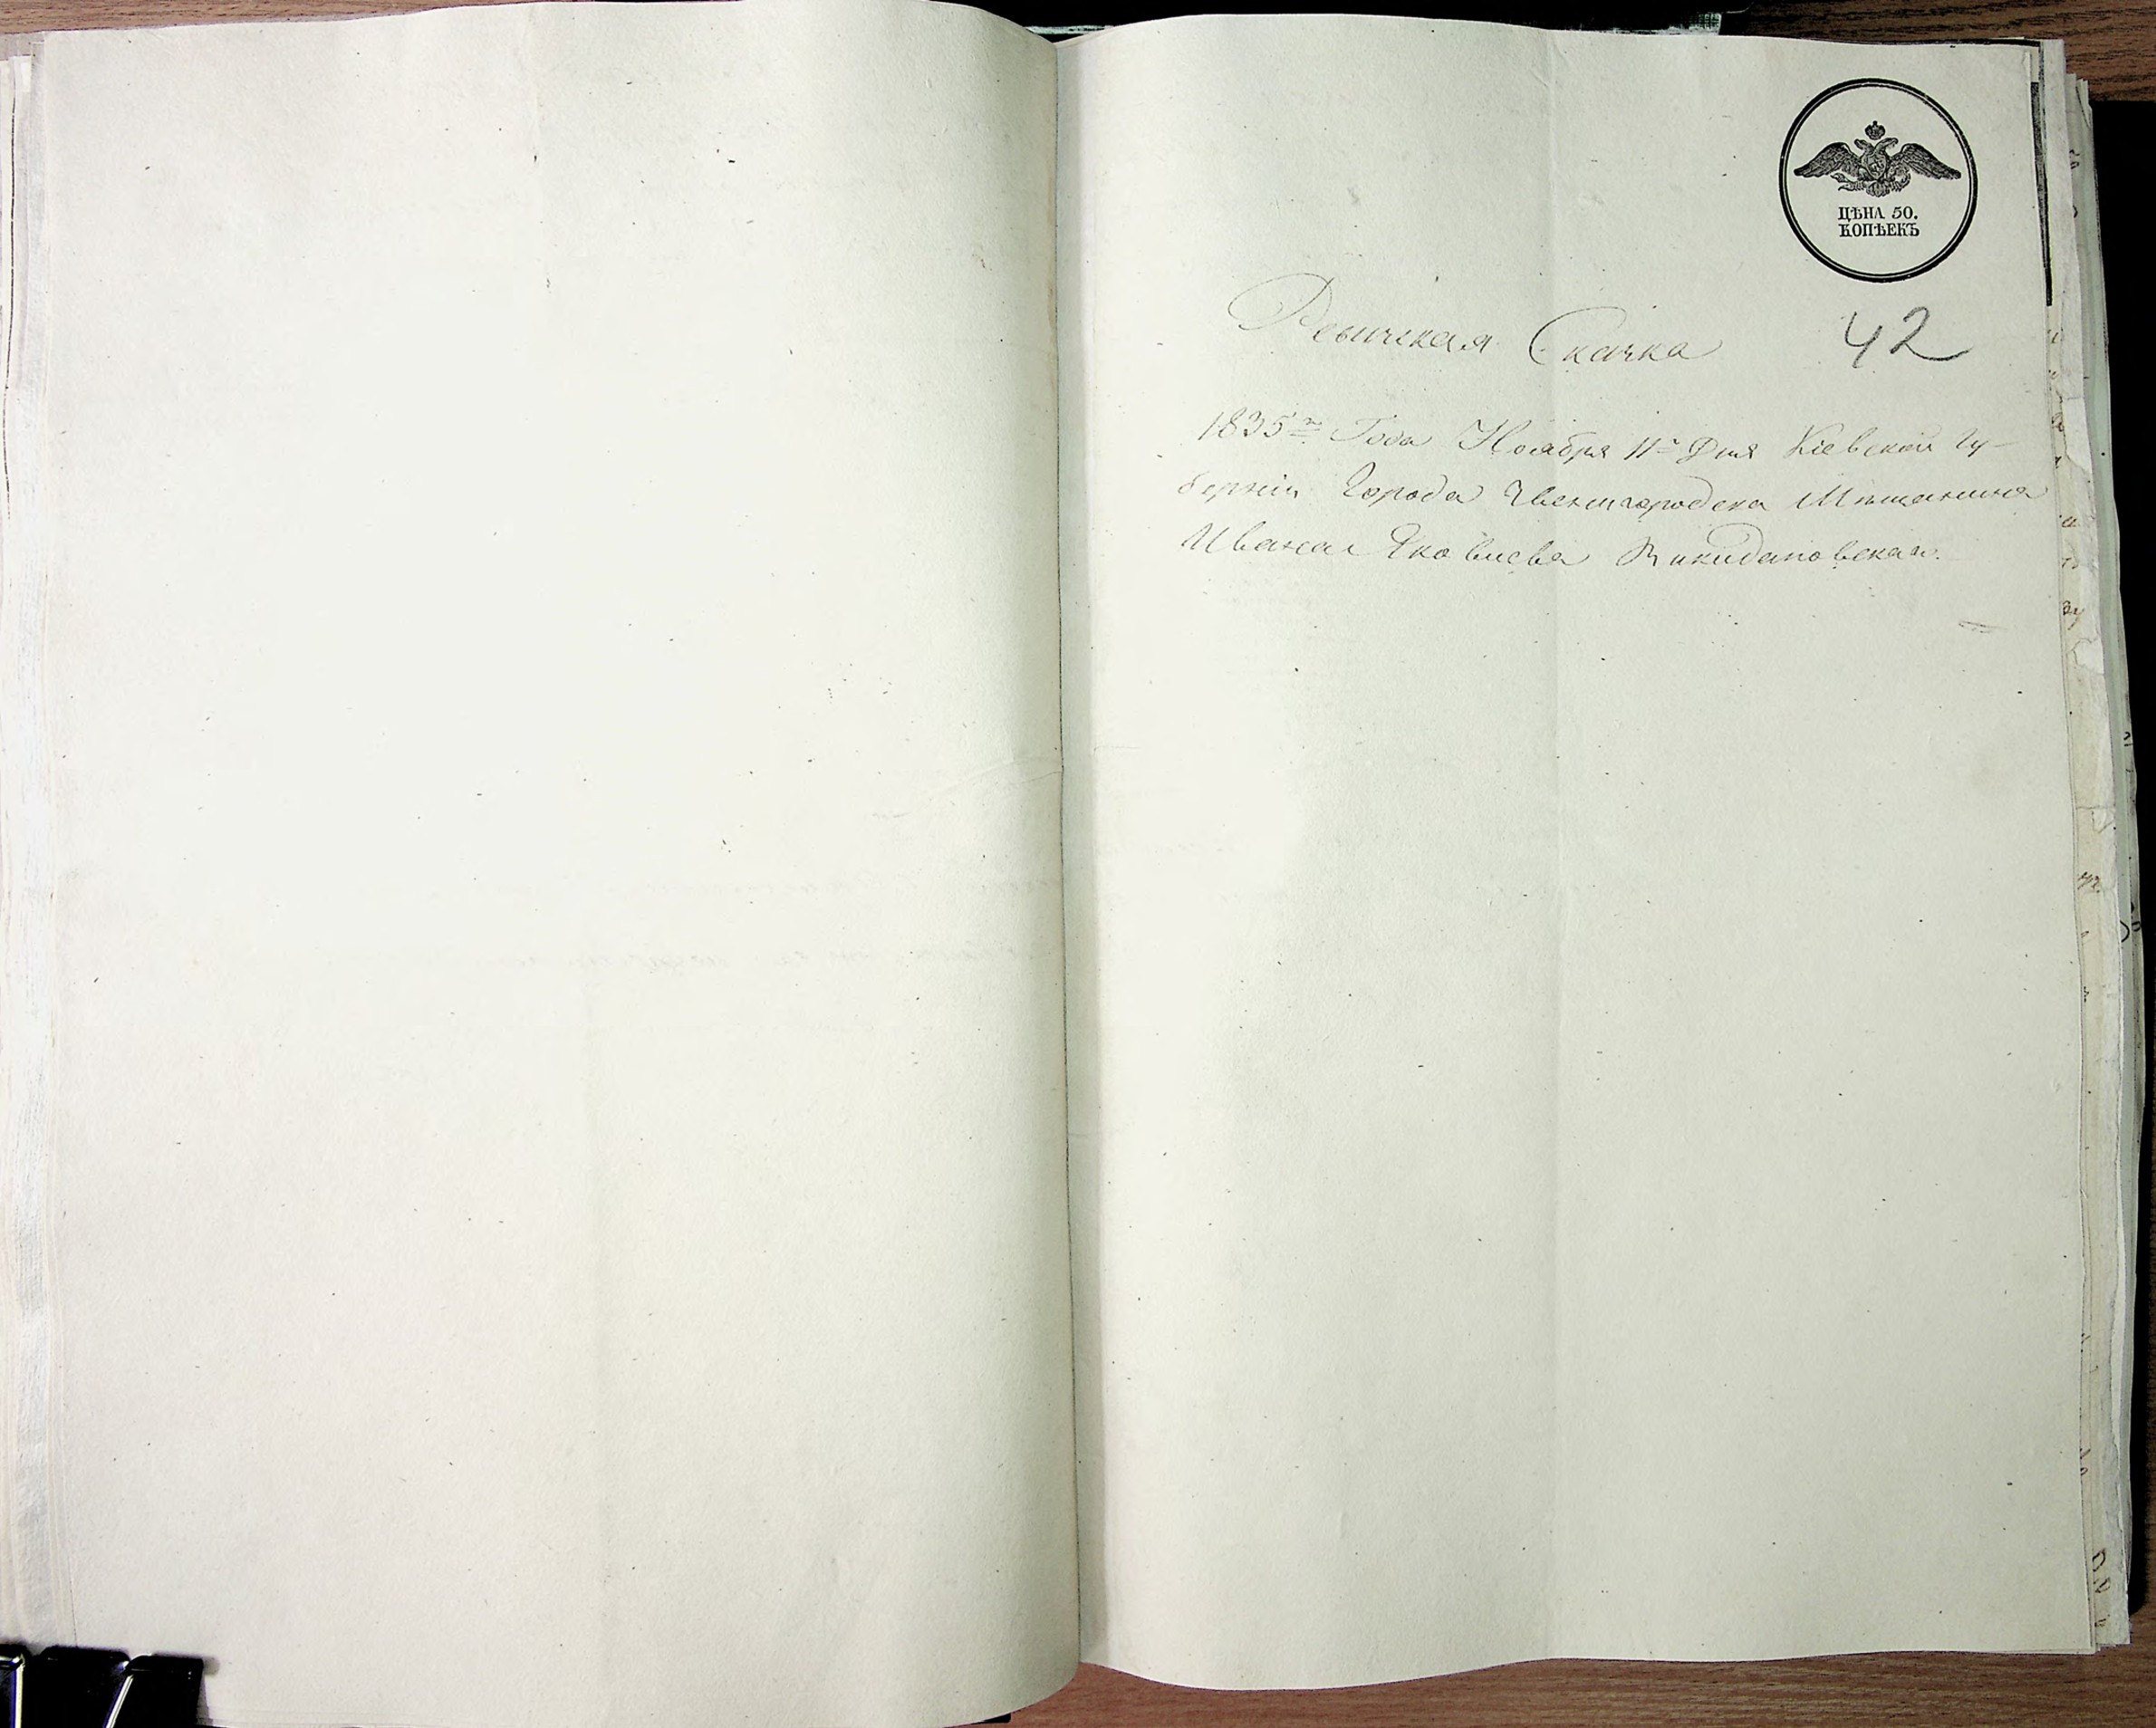 ЦѢНА 50.
КОПѢЕКЪ
Ревиская Скаска
42
1835го Года Ноября 11го Дня Кіевской Гу-
берніи Города Звенигородска Мѣщанина
Ивана Яковлева